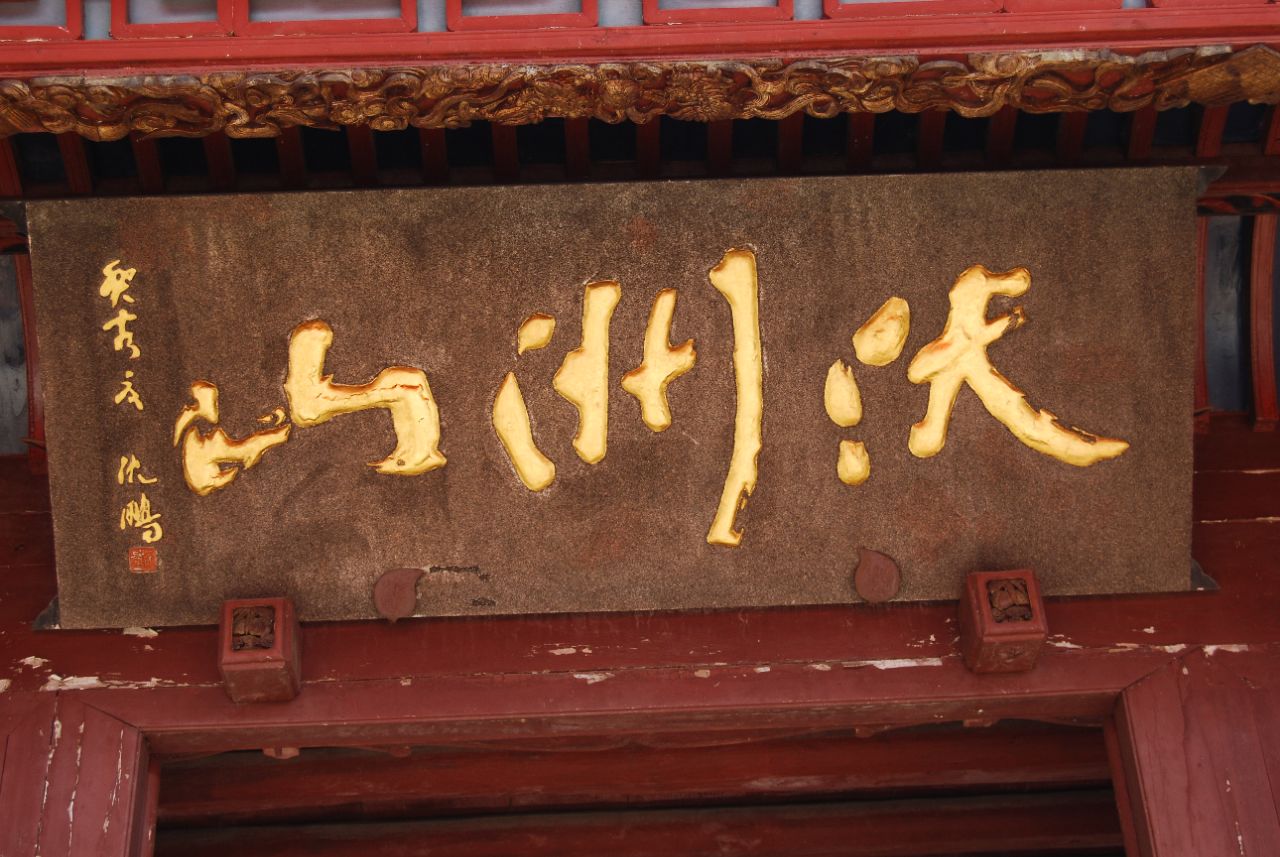 沃洲山
癸
沈鹏